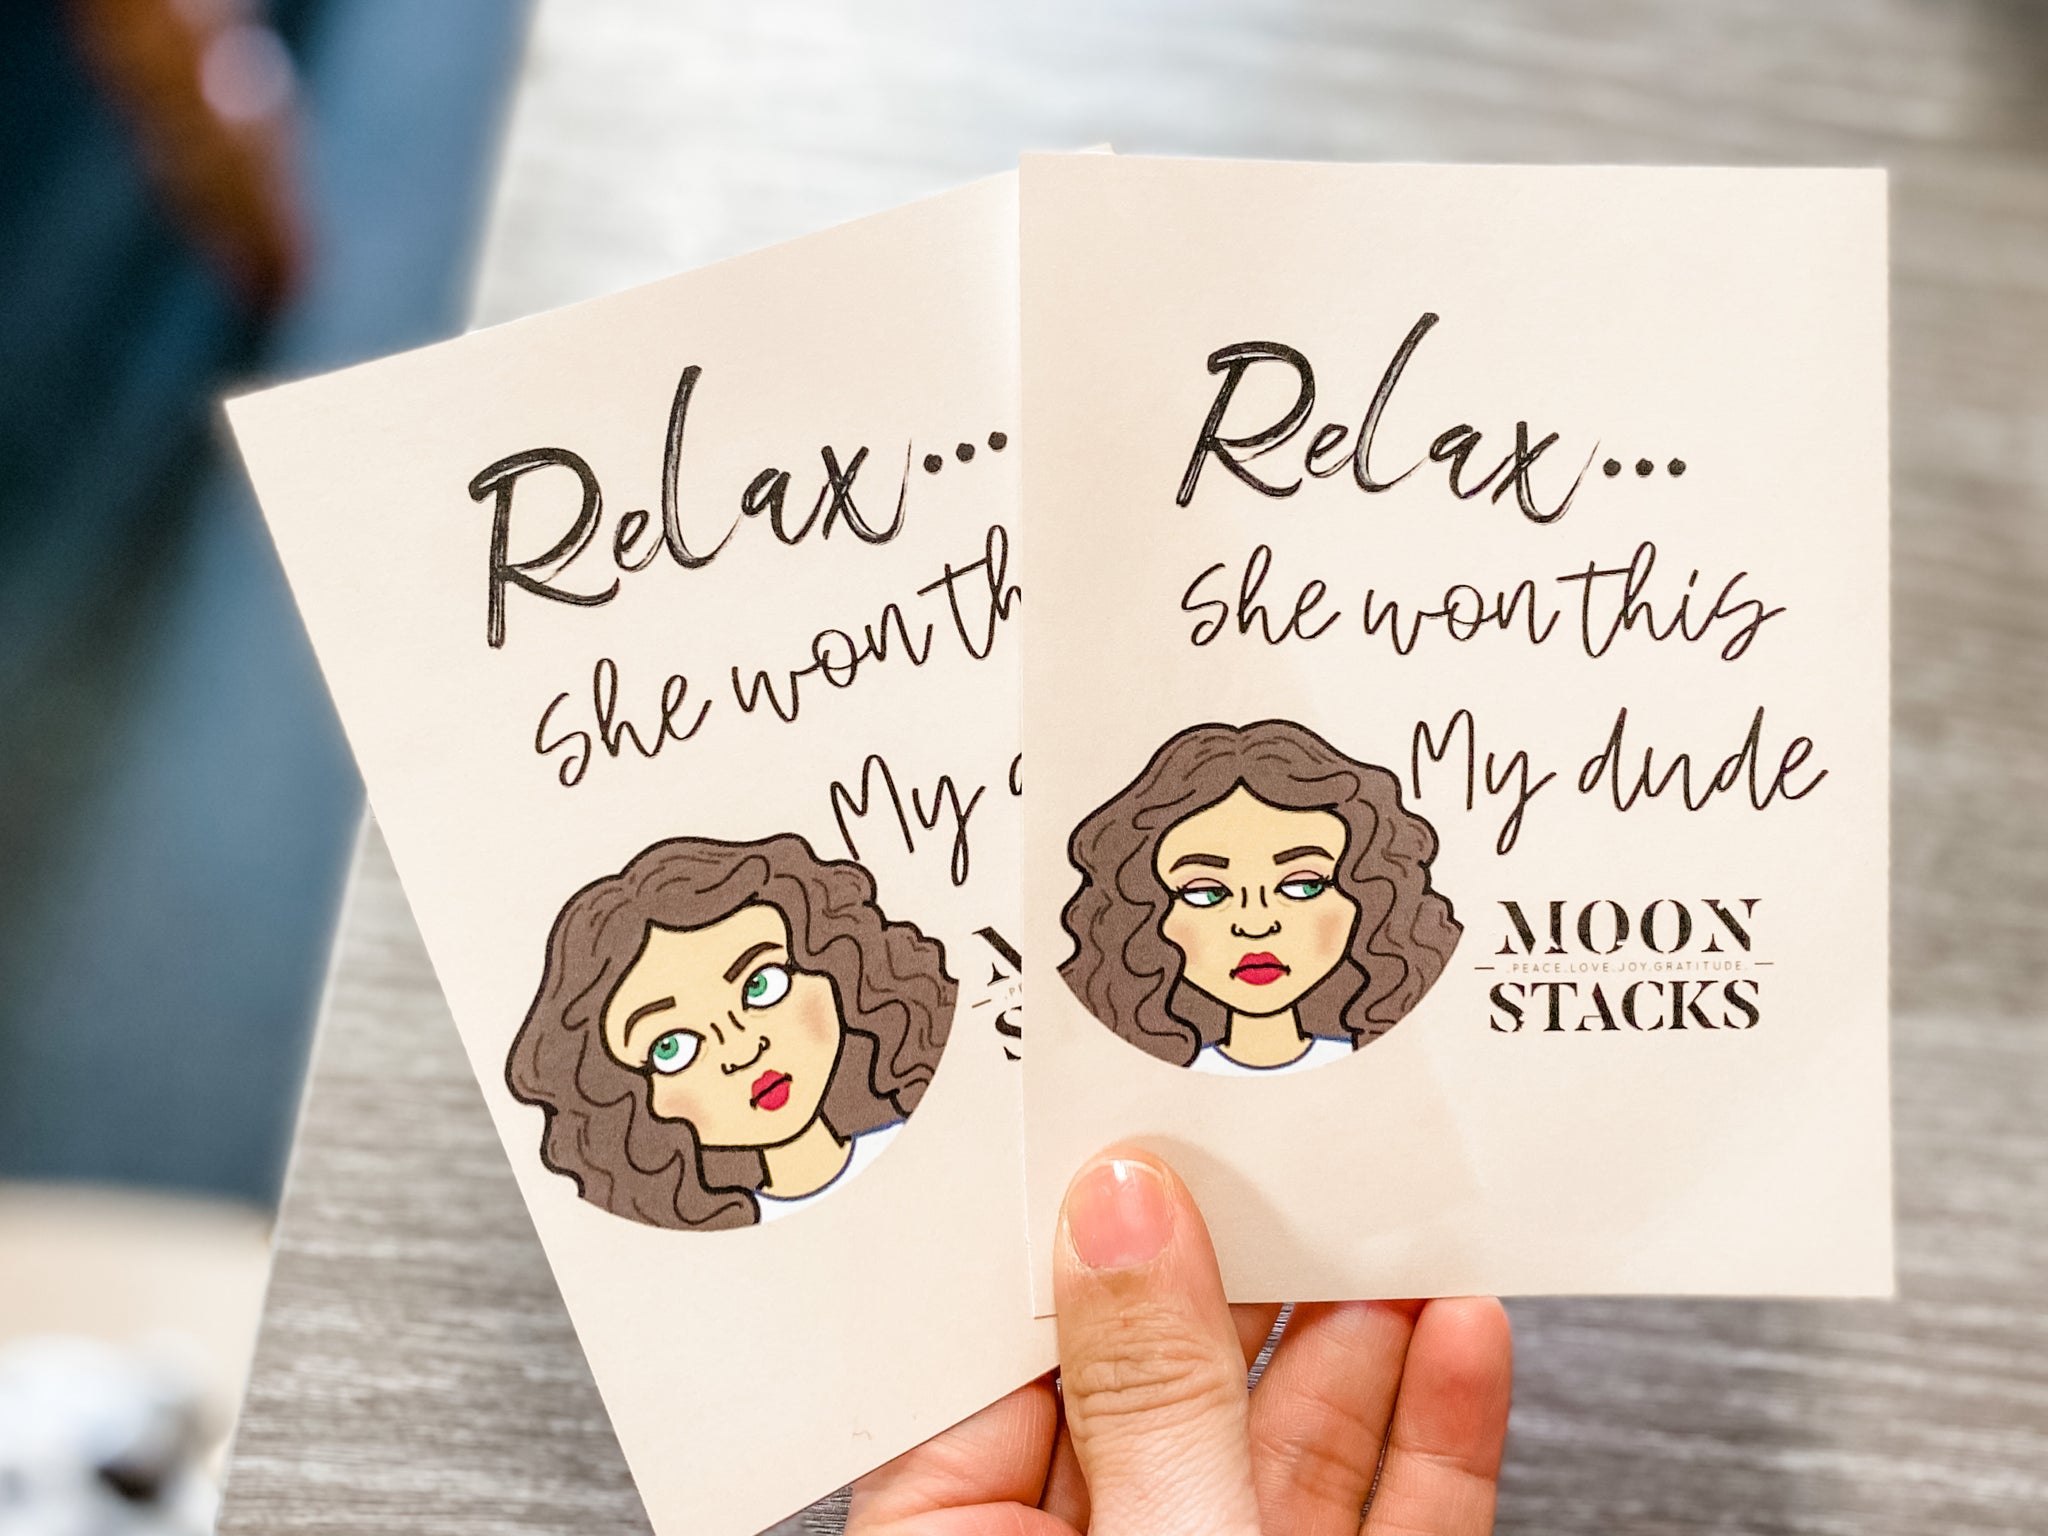 Relax...
She won th
My
Relax...
She won this
My dude
MOON
.PEACE.LOVE.JOY.GRATITUDE.
STACKS